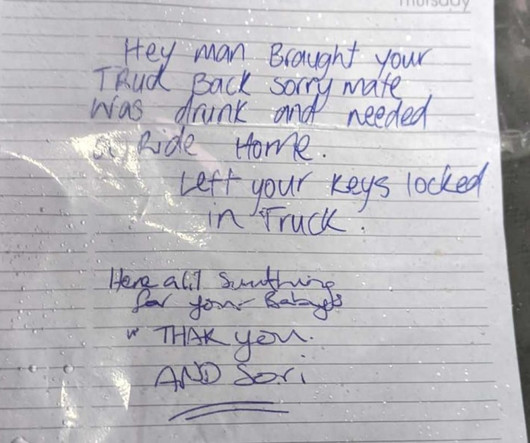 Thursday
Hey man Brought your
TRuck Back sorry mate
Was drunk and needed
a Ride Home.
Left your keys locked
in Truck.
Here a lil Sumthing
for your Babays
" THAK you.
AND Sori